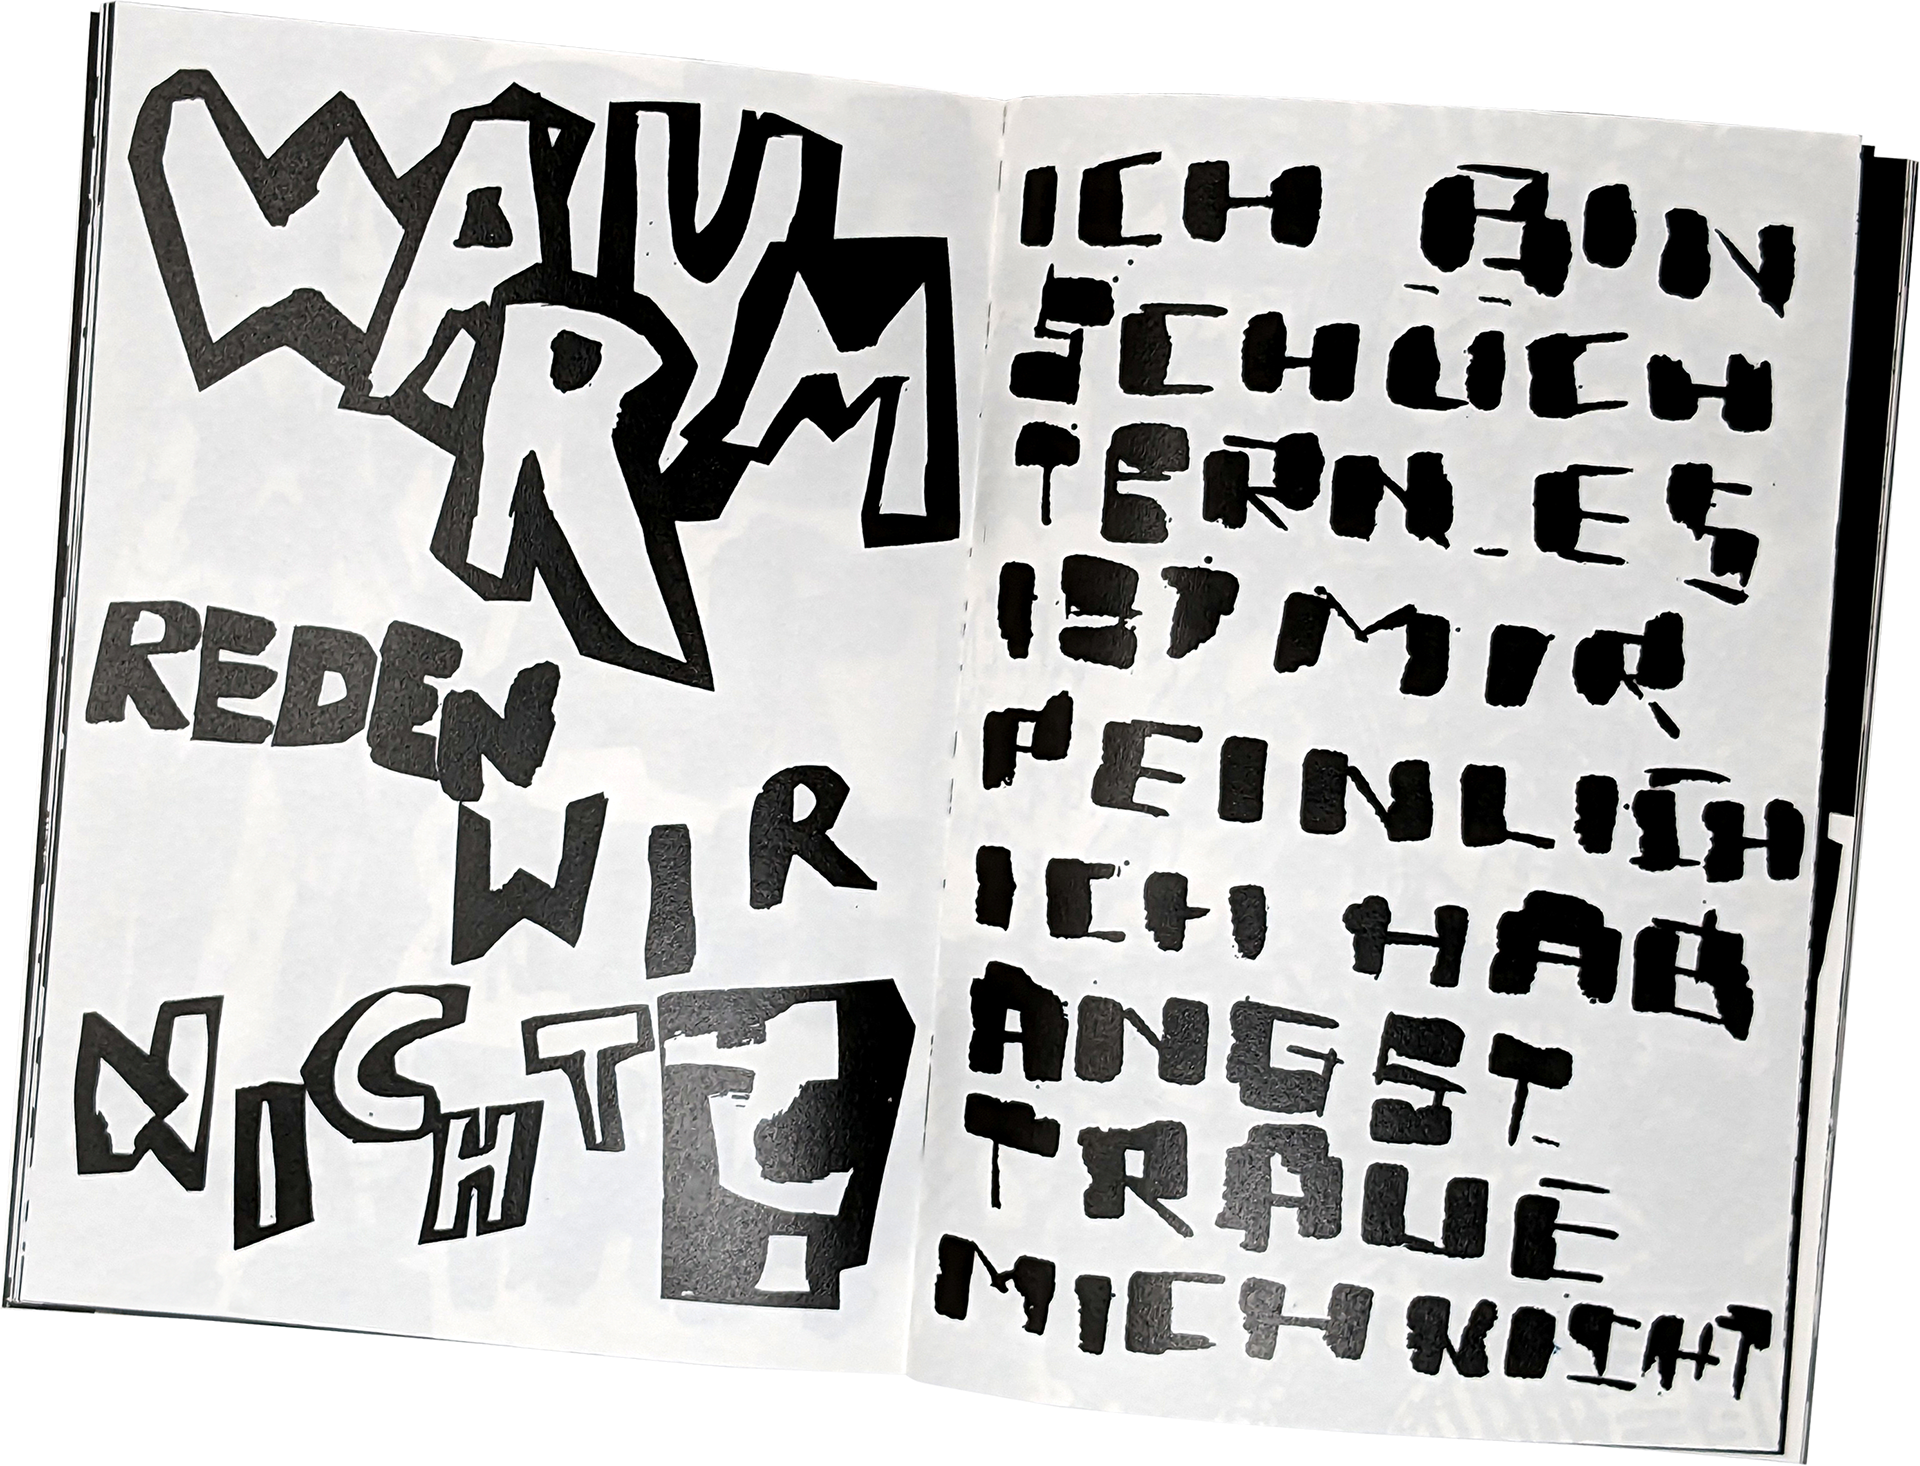 WARUM
REDEN
WIR
NICHT?
ICH BIN
SCHÜCH
TERN_ES
IST MIR
PEINLICH
ICH HAB
ANGST
TRAUE
MICH NICHT